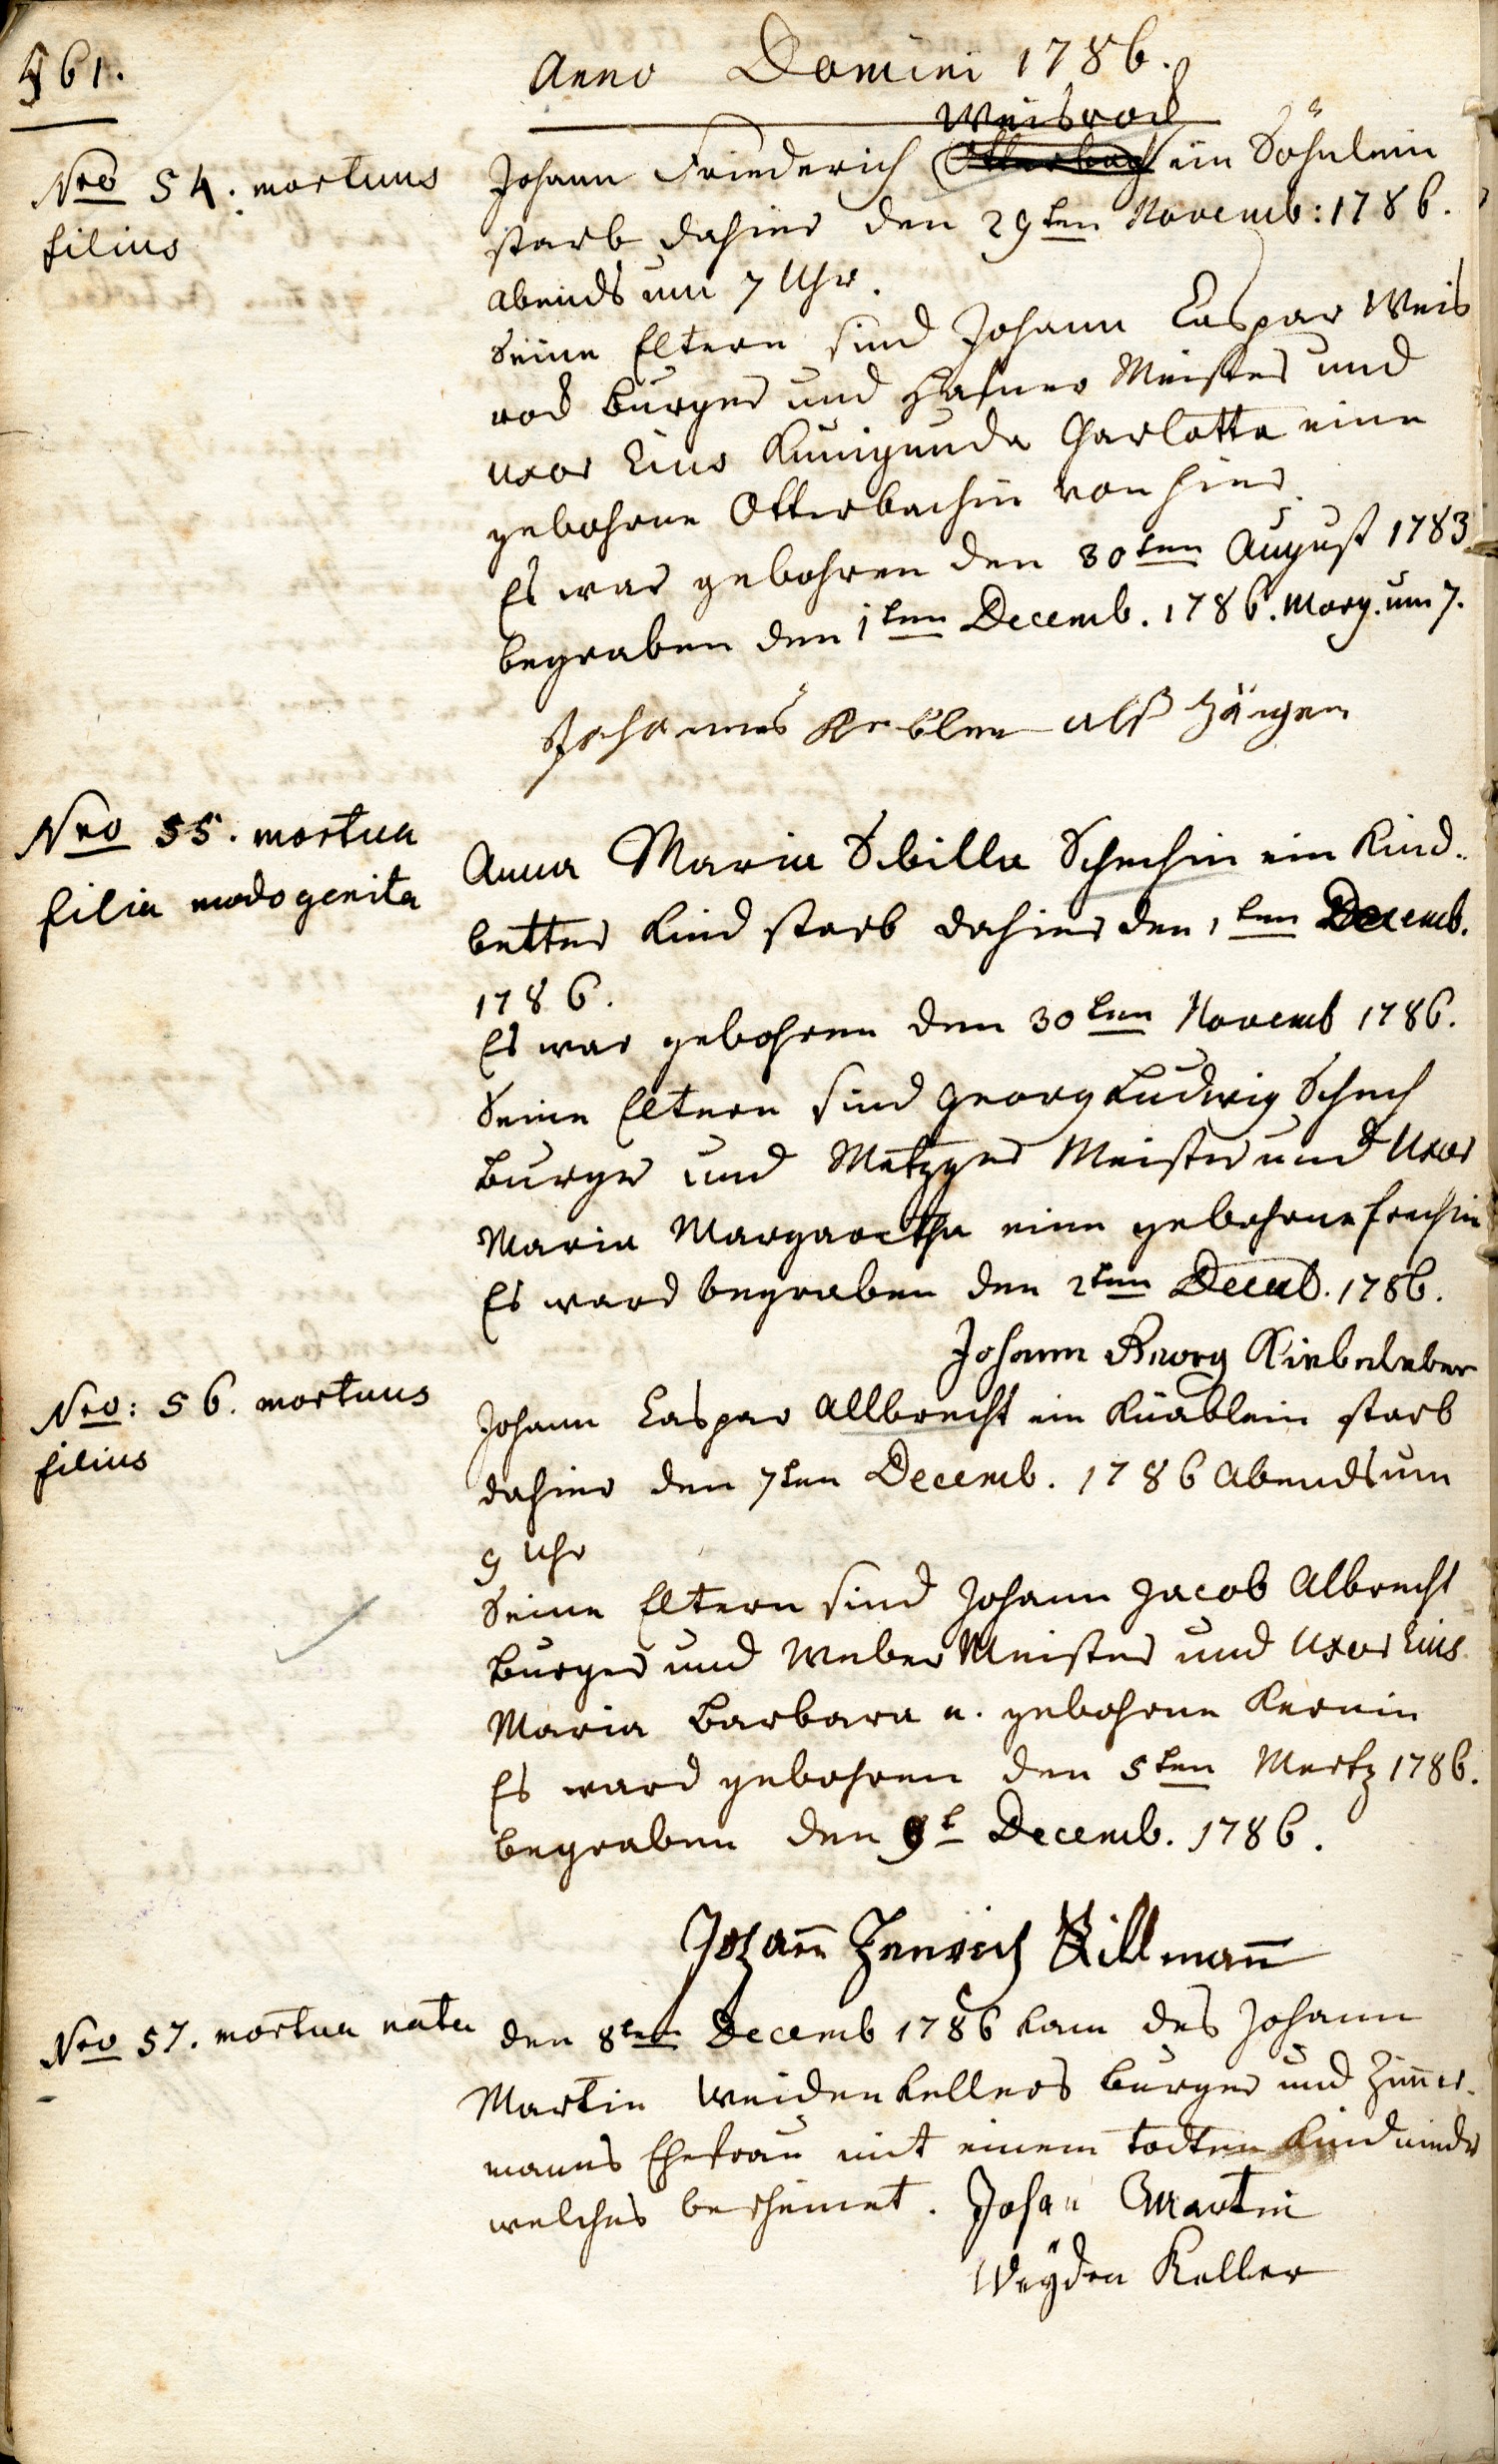 461.
Anno Domini 1786.
Weisrod
Nro 54. mortuus
filius
Johann Friederich Otterbach ein Söhnlein
starb dahier den 29ten Novemb: 1786.
abends um 7 Uhr.
Seine Eltern sind Johann Caspar Weis
rod burger und Hafner Meister und
uxor Eius Kunigunda Charlotta eine
gebohrne Otterbachin von hier.
Es war gebohren den 30ten August 1783
begraben den 1ten Decemb. 1786. Morg. um 7.
Johannes als
Nro 55. mortua
filia modo genita
Anna Maria Sibilla Schechin ein Kind-
better Kind starb dahier den 1ten Decemb.
1786.
Es war gebohren den 30ten Novemb 1786.
Seine Eltern sind Georg Ludwig Schech
burger und Metzger Meister und Uxor
Maria Margaretha eine gebohrne Frechin
Es ward begraben den 2ten Decemb. 1786.
Johann Georg
Nro: 56. mortuus
filius
Johann Caspar Allbrecht ein Knäblein starb
dahier den 7ten Decemb. 1786 Abends um
9 Uhr
Seine Eltern sind Johann Jacob Albrecht
burger und Weber Meister und Uxor Eius
Maria Barbara e. gebohrne Kernin
Es ward gebohren den 5ten Mertz 1786.
begraben den 9t Decemb. 1786.
Johann Henrich Killmann
Nro 57. mortua nata
den 8ten Decemb 1786 kam des Johann
Martin Weidenkellers burger und Zimmer-
manns Ehefrau mit einem todten Kind nieder
welches bescheinet. Johan Martin
Weÿden Keller